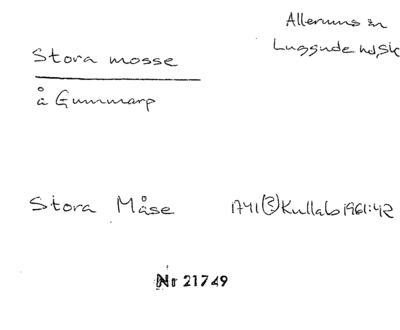 Allerums sn
Luggude hd, Sk
Stora mosse
å Gummarp
Stora Måse 1741(?) Kullabo 1961:42
Nr 21749